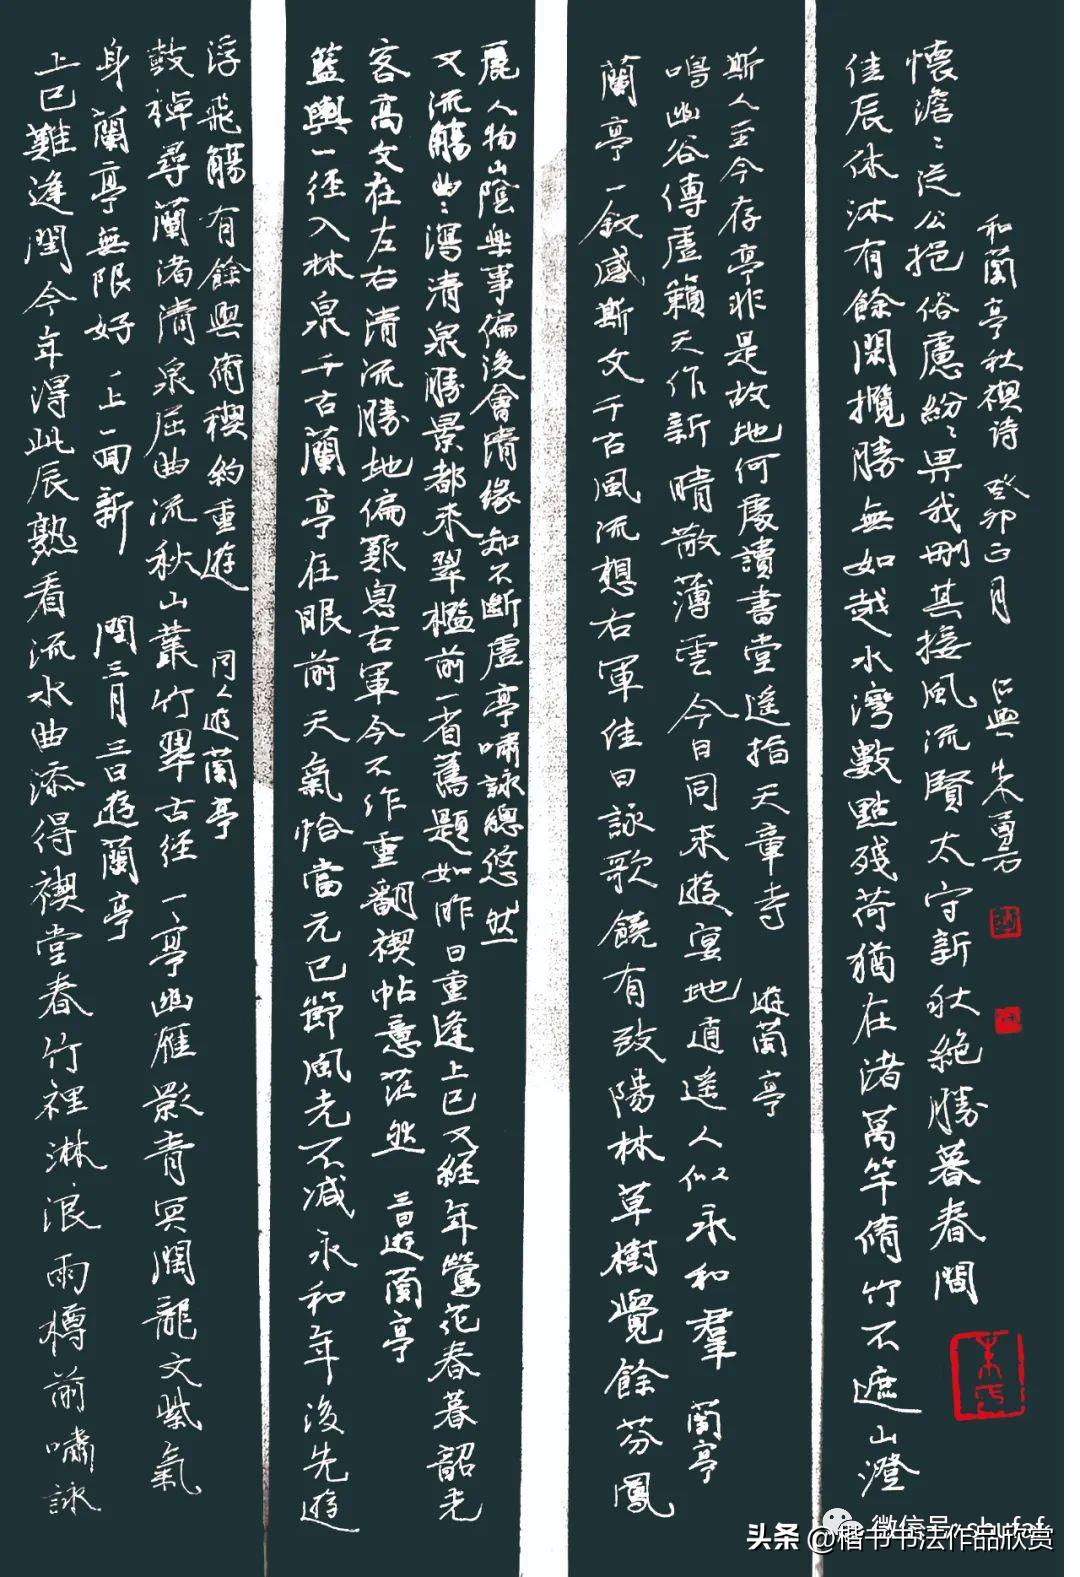 上巳難逢閏今年得此辰熟看流水曲添得禊堂春竹裡淋浪雨樽前嘯詠
身蘭亭無限好一上一回新 閏三月三日遊蘭亭
鼓棹尋蘭渚清泉屈曲流秋山叢竹翠古徑一亭幽雁影青冥闊龍文紫氣
浮飛觴有餘興脩禊約重遊 同人遊蘭亭
籃輿一徑入林泉千古蘭亭在眼前天氣恰當元巳節風光不減永和年後先遊
客高文在左右清流勝地偏歎息右軍今不作重翻禊帖意茫然 三日遊蘭亭
又流觴曲〻瀉清泉勝景都來翠檻前一省舊題如昨日重逢上巳又經年鶯花春暮韶光
麗人物山陰樂事偏後會清緣知不斷虛亭嘯詠總悠然
蘭亭一敘感斯文千古風流想右軍佳日詠歌饒有致陽林草樹覺餘芬鳳
鳴幽谷傳虛籟天作新晴散薄雲今日同來遊宴地逍遙人似永和羣 蘭亭
斯人至今存亭非是故地何處讀書堂遙指天章寺 遊蘭亭
佳辰休沐有餘閑攬勝無如越水灣數點殘荷猶在渚萬竿脩竹不遮山澄
懷澹〻從公挹俗慮紛〻畀我刪其接風流賢太守新秋絕勝暮春間
和蘭亭秋禊诗 癸卯正月 朱勇方
微信号: shufaf
头条 @楷书书法作品欣赏